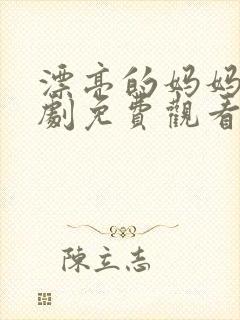 漂亮的妈妈
劇免費觀看
陳立志